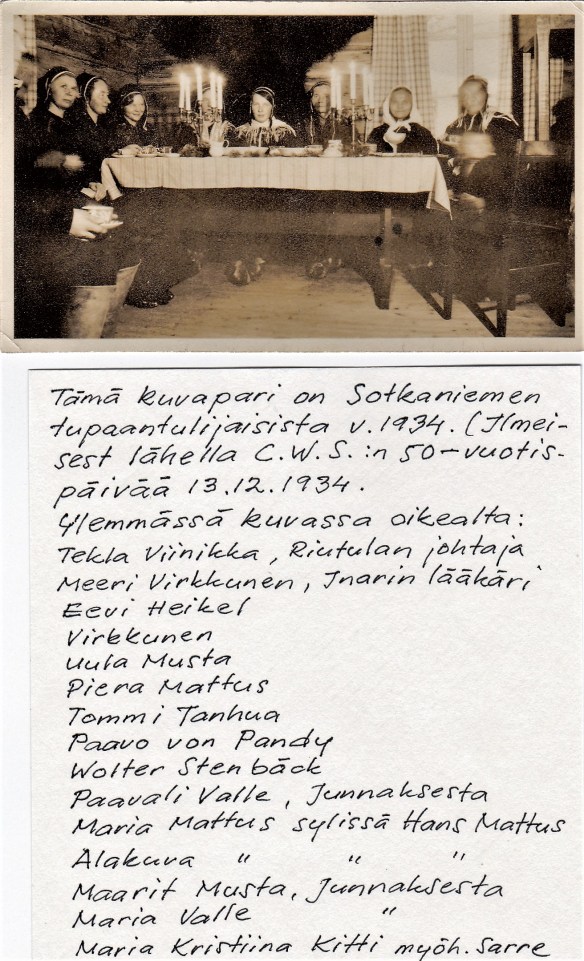 Tämä kuvapari on Sotkaniemen
tupaantulijaisista v.1934. (Ilmei-
sest lähellä C.W.S.:n 50-vuotis-
päivää 13.12.1934.
Ylemmässä kuvassa oikealta:
Tekla Viinikka, Riutulan johtaja
Meeri Virkkunen, Inarin lääkäri
Eevi Heikel
Virkkunen
Uula Musta
Piera Mattus
Tommi Tanhua
Paavo von Pandy
Wolter Stenbäck
Paavali Valle, Junnaksesta
Maria Mattus sylissä Hans Mattus
Alakuva " " "
Maarit Musta, Junnaksesta
Maria Valle "
Maria Kristiina Kitti myöh. Sarre